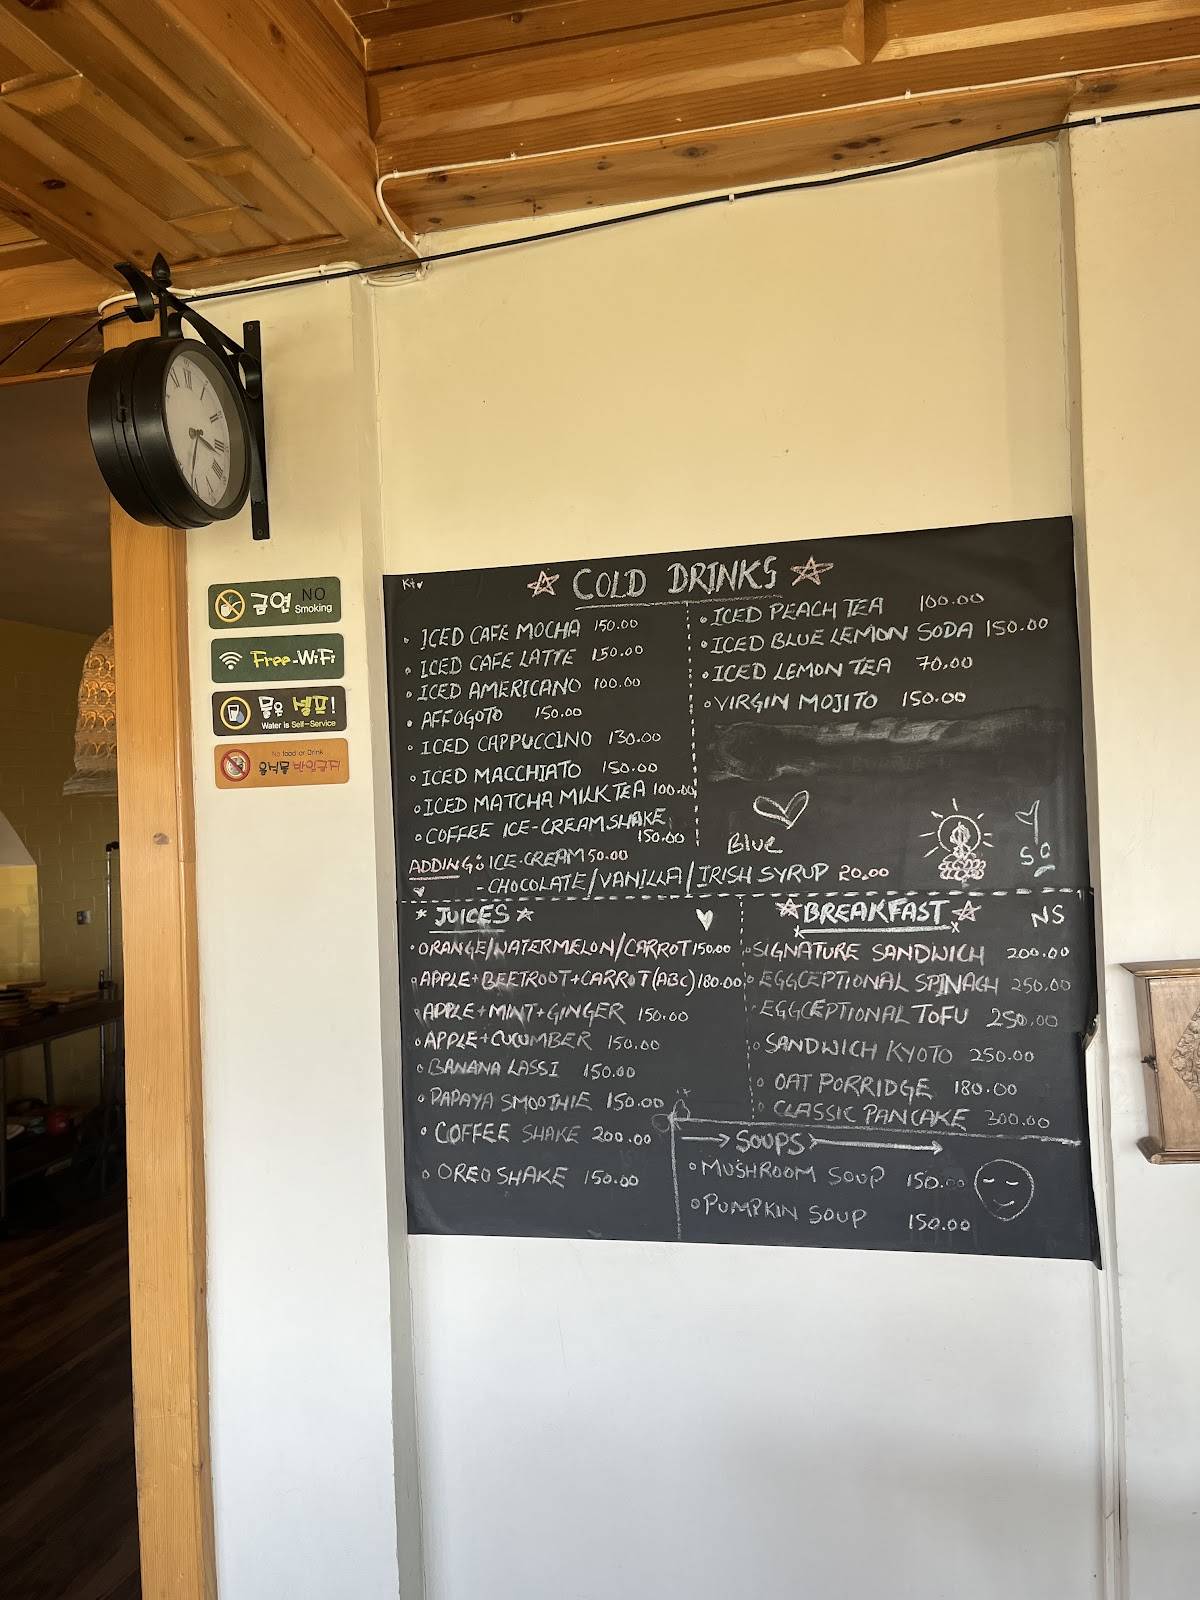 금연 NO Smoking
Free-WiFi
물은 셀프!
Water is Self-Service
No food or Drink
음식물 반입금지
COLD DRINKS
ICED CAFE MOCHA 150.00
ICED CAFE LATTE 150.00
ICED AMERICANO 100.00
AFFOGOTO 150.00
ICED CAPPUCCINO 130.00
ICED MACCHIATO 150.00
ICED MATCHA MILK TEA 100.00
COFFEE ICE-CREAM SHAKE 150.00
ADDING: ICE-CREAM 50.00
- CHOCOLATE/VANILLA/IRISH SYRUP 20.00
ICED PEACH TEA 100.00
ICED BLUE LEMON SODA 150.00
ICED LEMON TEA 70.00
VIRGIN MOJITO 150.00
Blue
JUICES
ORANGE/WATERMELON/CARROT 150.00
APPLE+BEETROOT+CARROT(ABC) 180.00
APPLE+MINT+GINGER 150.00
APPLE+CUCUMBER 150.00
BANANA LASSI 150.00
PAPAYA SMOOTHIE 150.00
COFFEE SHAKE 200.00
OREO SHAKE 150.00
BREAKFAST NS
SIGNATURE SANDWICH 200.00
EGGCEPTIONAL SPINACH 250.00
EGGCEPTIONAL TOFU 250.00
SANDWICH KYOTO 250.00
OAT PORRIDGE 180.00
CLASSIC PANCAKE 300.00
SOUPS
MUSHROOM SOUP 150.00
PUMPKIN SOUP 150.00